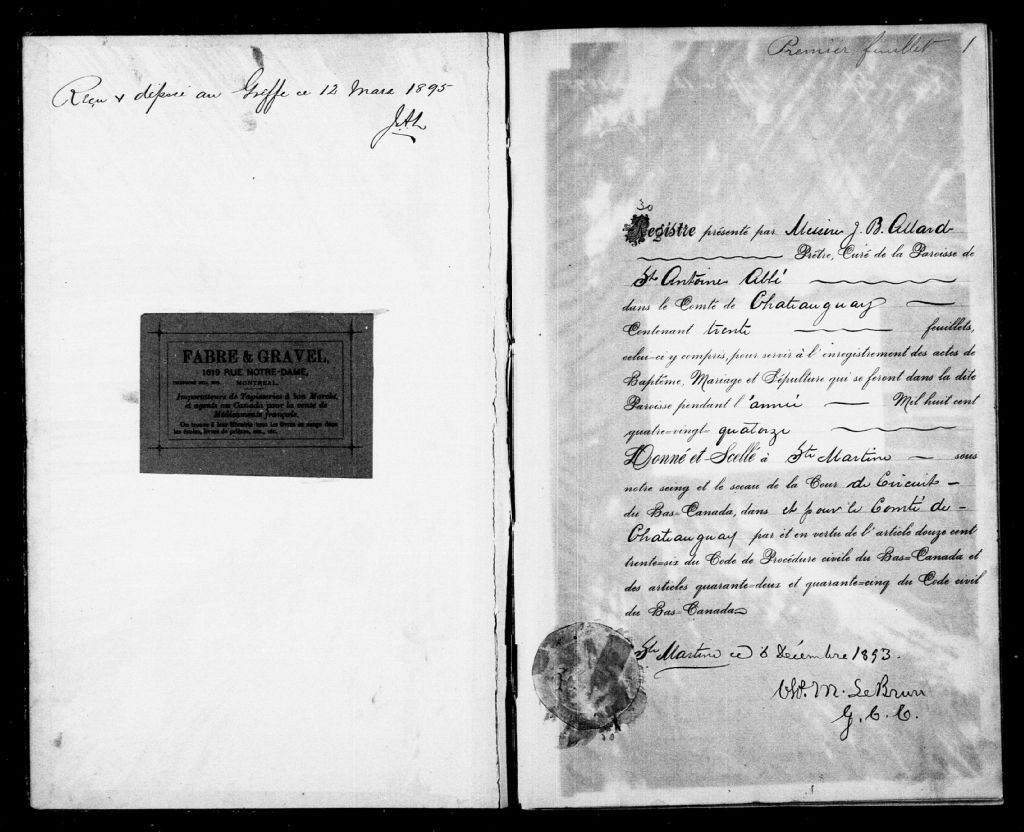 Reçu & déposé au Greffe ce 12 Mars 1895
J.A.L
FABRE & GRAVEL,
1619 RUE NOTRE-DAME,
MONTREAL.
Importateurs de Tapisseries à bon Marché,
et agents au Canada pour la vente de
Médicaments français.
On trouve à leur librairie tous les livres en usage dans
les écoles, livres de prières, etc., etc.
Premier feuillet 1
30
Registre présenté par Messire J. B. Allard
Prêtre, Curé de la Paroisse de
St Antoine Abbé
dans le Comté de Chateauguay
Contenant trente feuillets,
celui-ci y compris, pour servir à l'enregistrement des actes de
Baptême, Mariage et Sépulture qui se feront dans la dite
Paroisse pendant l'année Mil huit cent
quatre-vingt quatorze
Donné et Scellé à Ste Martine sous
notre seing et le sceau de la Cour de Circuit
du Bas-Canada, dans et pour le Comté de
Chateauguay par et en vertu de l'article douze cent
trente-six du Code de Procédure civile du Bas-Canada et
des articles quarante-deux et quarante-cinq du Code civil
du Bas-Canada
Ste Martine ce 6 Décembre 1893.
M. LeBrun
G. C. C.
30